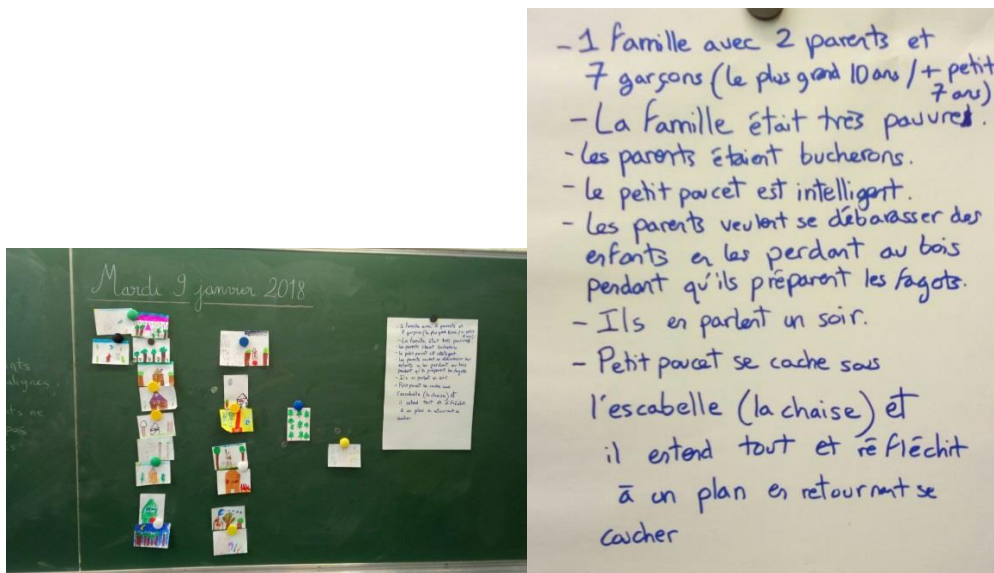 Mardi 9 janvier 2018
- 1 famille avec 2 parents et
7 garçons (le plus grand 10 ans / + petit
7 ans)
- La famille était très pauvre.
- Les parents étaient bucherons.
- le petit poucet est intelligent.
- Les parents veulent se débarasser des
enfants en les perdant au bois
pendant qu'ils préparent les fagots.
- Ils en parlent un soir.
- Petit poucet se cache sous
l'escabelle (la chaise) et
il entend tout et réfléchit
à un plan en retournant se
coucher